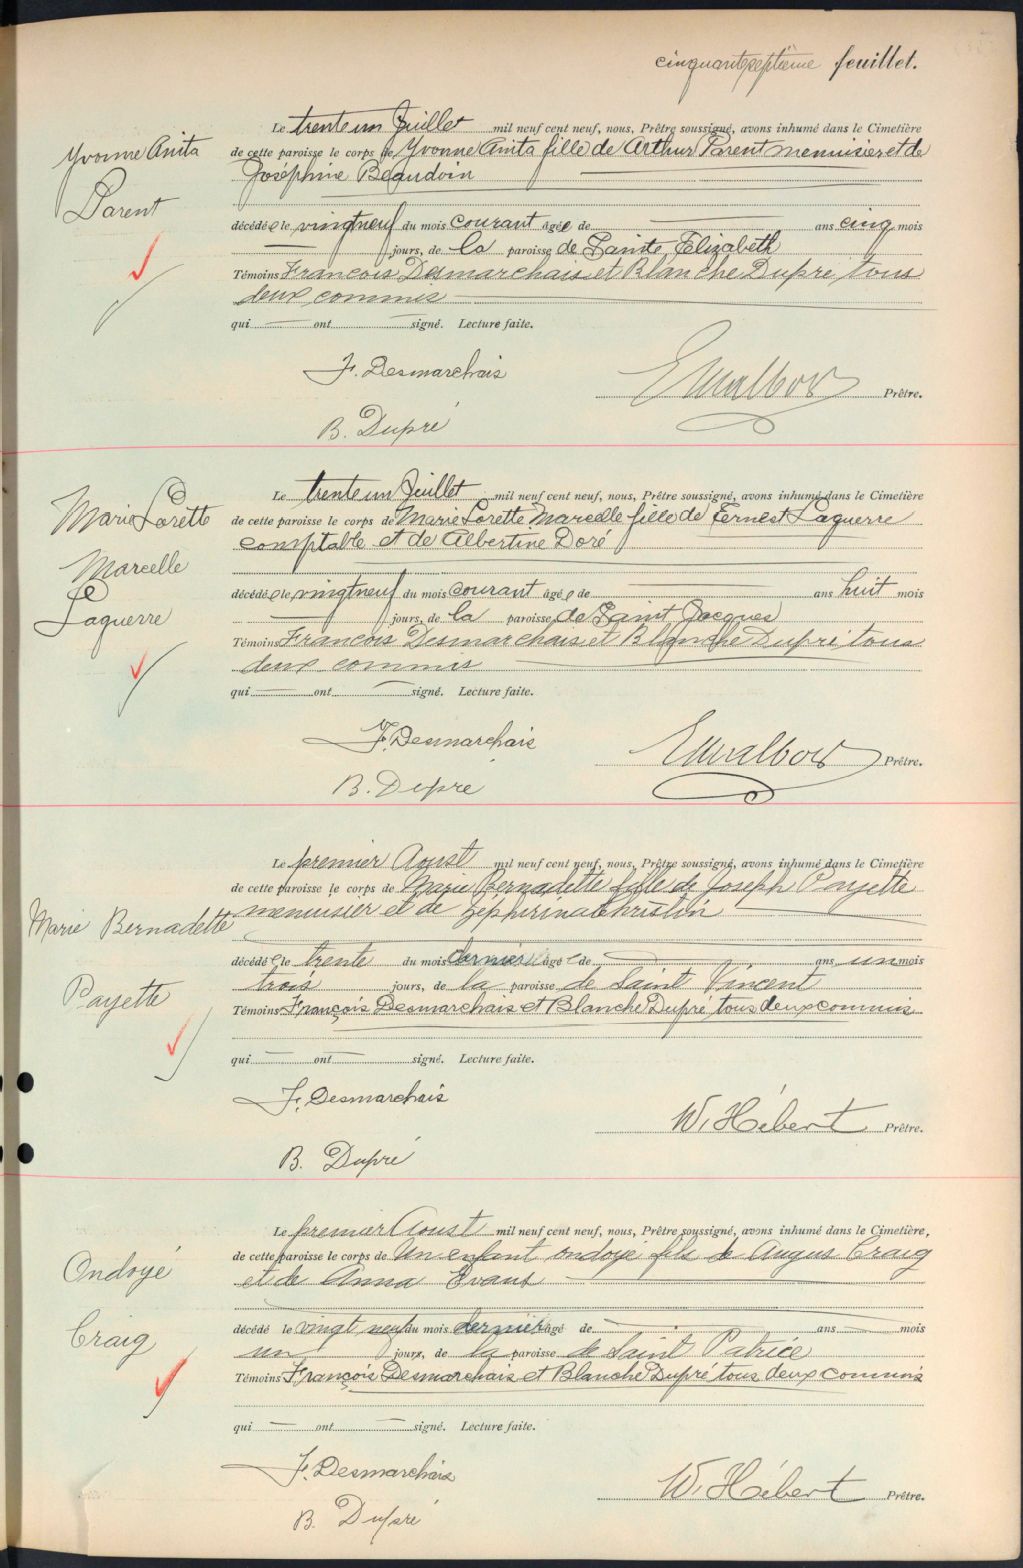 cinquanteseptième feuillet.
Yvonne Anita
Parent
Le trente un Juillet mil neuf cent neuf, nous, Prêtre soussigné, avons inhumé dans le Cimetière
de cette paroisse le corps de Yvonne Anita fille de Arthur Parent menuisier et de
Joséphine Beaudoin
décédée le vingtneuf du mois courant âgée de ans cinq mois
jours, de la paroisse de Sainte Elizabeth
Témoins Francois Desmarchais et Blanche Dupré, tous
deux commis
qui ont signé. Lecture faite.
F. Desmarchais
Prêtre.
B. Dupré
Marie Lorette
Marcelle
Laguerre
Le trente un Juillet mil neuf cent neuf, nous, Prêtre soussigné, avons inhumé dans le Cimetière
de cette paroisse le corps de Marie Lorette Marcelle fille de Ernest Laguerre
comptable et de Albertine Doré
décédée le vingtneuf du mois courant âgée de ans huit mois
jours, de la paroisse de Saint Jacques
Témoins Francois Desmarchais et Blanche Dupré tous
deux commis
qui ont signé. Lecture faite.
F. Desmarchais
Prêtre.
B. Dupré
Marie Bernadette
Payette
Le premier Aoust mil neuf cent neuf, nous, Prêtre soussigné, avons inhumé dans le Cimetière
de cette paroisse le corps de Marie Bernadette fille de Joseph Payette
menuisier et de Zéphirina Christin
décédée le trente du mois dernier âgée de ans un mois
trois jours, de la paroisse de Saint Vincent
Témoins François Desmarchais et Blanche Dupré tous deux commis
qui ont signé. Lecture faite.
F. Desmarchais
W. Hébert Prêtre.
B. Dupré
Ondoyé
Craig
Le premier Aoust mil neuf cent neuf, nous, Prêtre soussigné, avons inhumé dans le Cimetière,
de cette paroisse le corps de un enfant ondoyé fils de Angus Craig
et de Anna Evans
décédé le vingt neuf du mois dernier âgé de ans mois
un jours, de la paroisse de Saint Patrice
Témoins François Desmarchais et Blanche Dupré tous deux commis
qui ont signé. Lecture faite.
F. Desmarchais
W. Hébert Prêtre.
B. Dupré